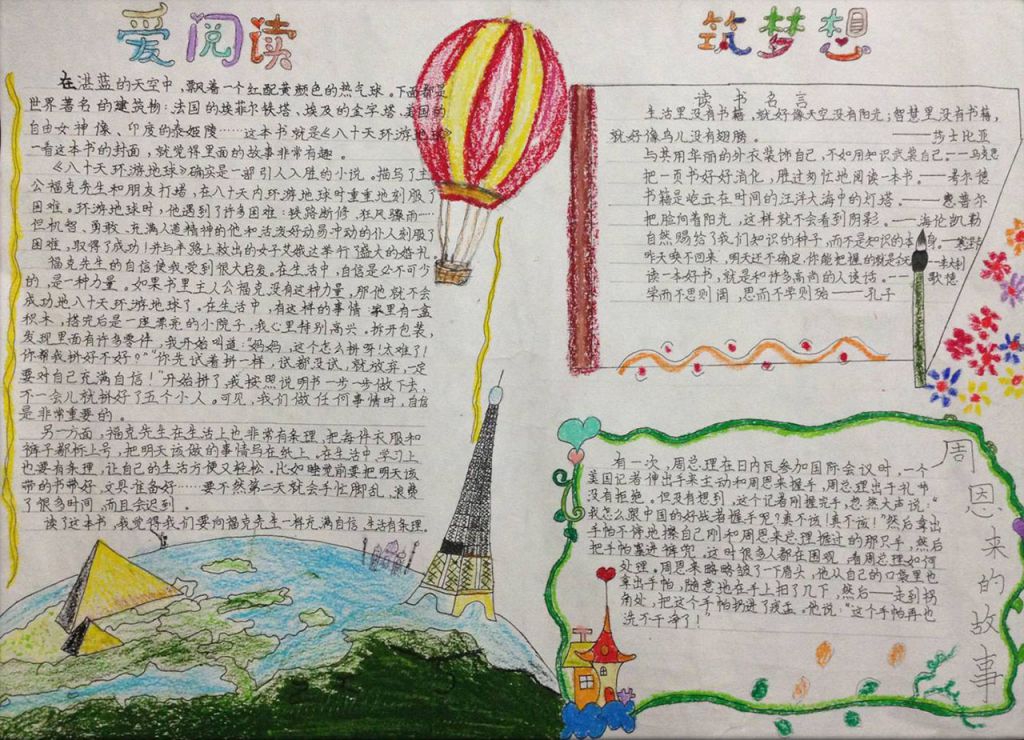 爱阅读
在湛蓝的天空中，飘着一个红配黄颜色的热气球。下面都是
世界著名的建筑物：法国的埃菲尔铁塔、埃及的金字塔、美国的
自由女神像、印度的泰姬陵……这本书就是《八十天环游地球》
一看这本书的封面，就觉得里面的故事非常有趣。
《八十天环游地球》确实是一部引人入胜的小说。描写了主
公福克先生和朋友打赌，在八十天内环游地球时重重地刻服了
困难。环游地球时，他遇到了许多困难：铁路断修、狂风骤雨……
但机智、勇敢、充满人道精神的他和活泼好动易冲动的仆人刻服了
困难，取得了成功！并与半路上救出的女子艾娥达举行了盛大的婚礼
福克先生的自信使我受到很大启发。在生活中，自信是必不可少
的，是一种力量。如果书里主人公福克没有这种力量，那他就不会
成功地八十天环游地球了。在生活中，有这样的事情：家里有一盒
积木，搭完后是一座漂亮的小院子，我心里特别高兴。拆开包装，
发现里面有许多零件，我开始叫道：“妈妈，这个怎么拼呀！太难了！
你帮我拼好不好？”“你先试着拼一样，试都没试，就放弃，一定
要对自己充满自信！”开始拼了，我按照说明书一步一步做下去，
不一会儿就拼好了五个小人。可见，我们做任何事情时，自信
是非常重要的。
另一方面，福克先生在生活上也非常有条理，把每件衣服和
裤子都标上号，把明天该做的事情写在纸上。在生活中，学习上
也要有条理，让自己的生活方便又轻松。比如睡觉前要把明天该
带的书带好，文具准备好……要不然第二天就会手忙脚乱，浪费
了很多时间，而且会迟到。
读了这本书，我觉得我们要向福克先生一样充满自信，生活有条理。
筑梦想
读书名言
生活里没有书籍，就好像天空没有阳光；智慧里没有书籍，
就好像鸟儿没有翅膀。——莎士比亚
与其用华丽的外衣装饰自己，不如用知识武装自己。——马克思
把一页书好好消化，胜过匆忙地阅读一本书。——考尔德
书籍是屹立在时间的汪洋大海中的灯塔。——惠普尔
把脸向着阳光，这样就不会看到阴影。——海伦凯勒
自然赐给了我们知识的种子，而不是知识的本身。——塞
昨天唤不回来，明天还不确定，你能把握的就是
读一本好书，就是和许多高尚的人谈话。——歌德
学而不思则罔，思而不学则殆——孔子
周恩来的故事
有一次，周总理在日内瓦参加国际会议时，一个
美国记者伸出手来主动和周恩来握手，周总理出于礼节
没有拒绝。但没有想到，这个记者刚握完手，忽然大声说：“
我怎么跟中国的好战者握手呢？真不该！真不该！”然后拿出
手帕不停地擦自己刚和周恩来总理握过的那只手，然后
把手帕塞进裤兜。这时很多人都在围观，看周总理如何
处理。周恩来略略皱了一下眉头，他从自己的口袋里也
拿出手帕，随意地在手上扫了几下，然后——走到拐
角处，把这个手帕扔进了痰盂。他说：“这个手帕再也
洗不干净了！”